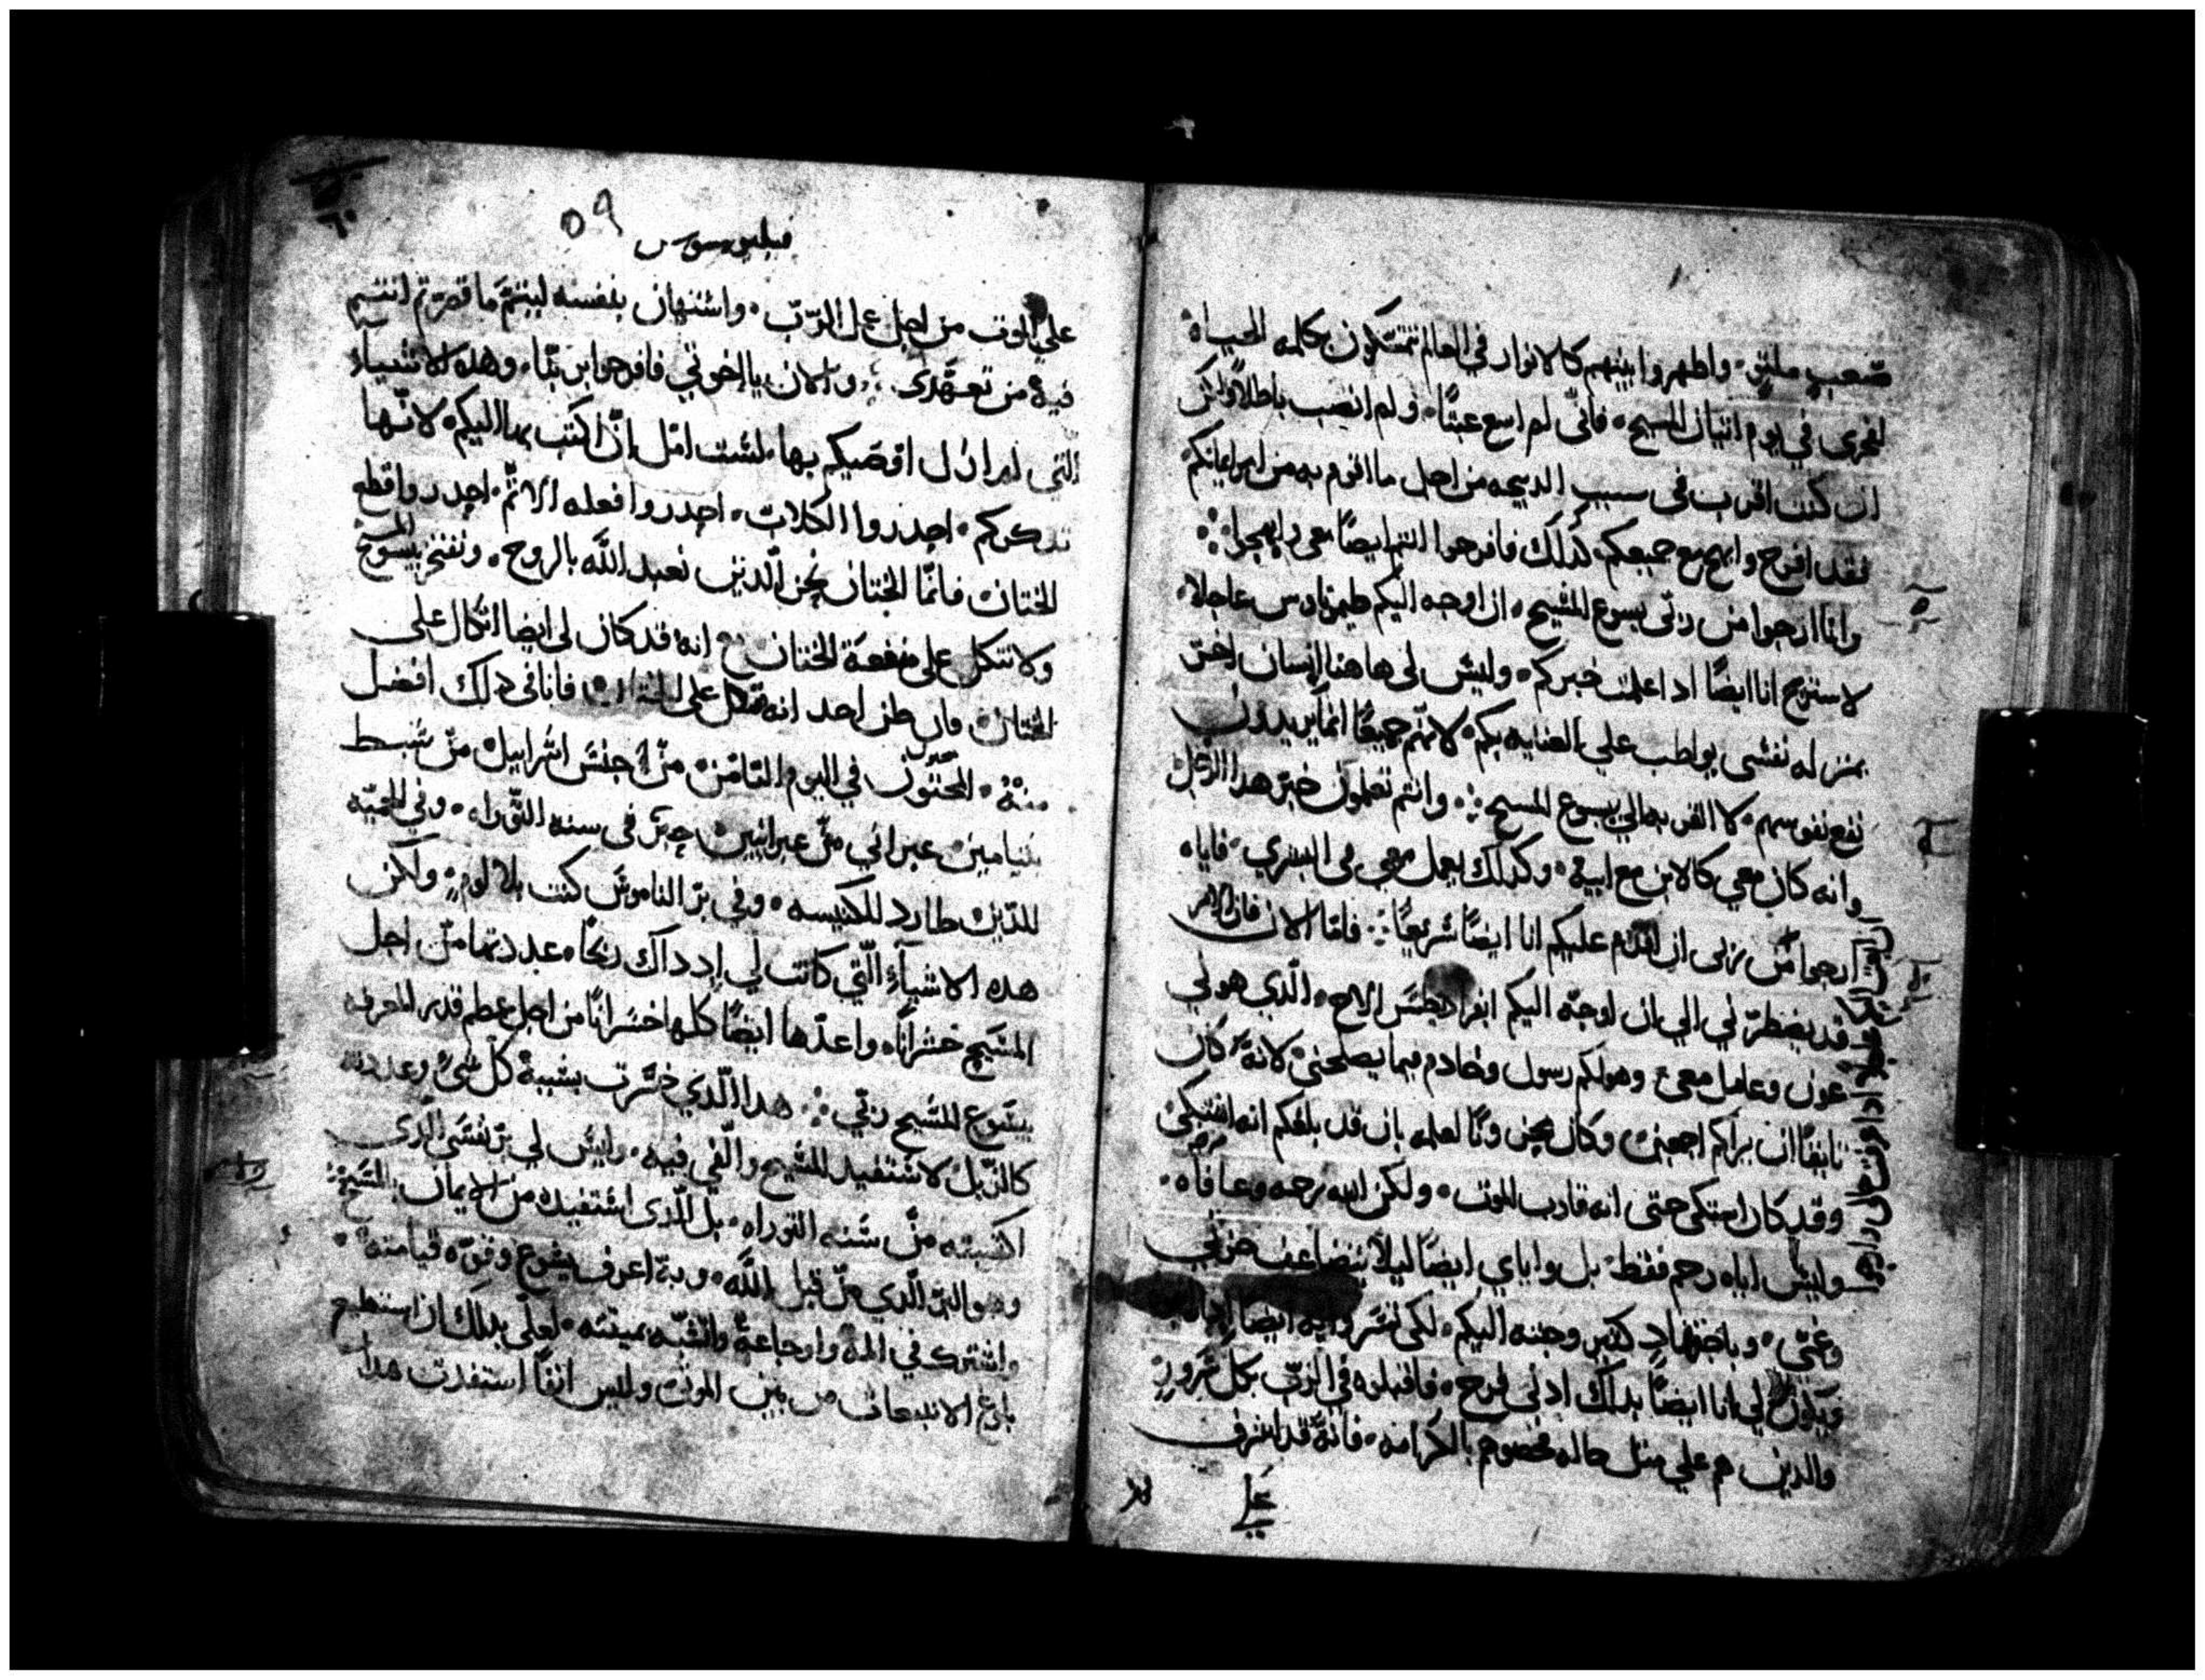 صعب ملتوٍ. واظهروا بينهم كالانوار في العالم تتمسكون بكلمه الحياه
لفخري في يوم اتيان المسيح. فاني لم اسع عبثًا. ولم انصب باطلاً ولكن
ان كنت اقرب في سبب الدبيحه من اجل ما اقوم به من امر ايمانكم
فقد افرح وابهج مع جميعكم كدلك فافرحوا انتم ايضًا معي وابهجوا
وانا ارجوا من ربي يسوع المسيح. ان اوجه اليكم طيمتاوس عاجلا.
لاستريح انا ايضًا ادا علمت خبركم. وليس لي هاهنا انسان اخر
بمنزله نفسى يواظب علي العنايه بكم. لانهم جميعًا انما يريدون
نفع نفوسهم. لا القربه الي يسوع المسيح. وانتم تعلمون خبر هدا الرجل
وانه كان معي كالابن مع ابيه. وكدلك يعمل معي في البشري. فاياه
ارجوا من ربي ان اقدم عليكم انا ايضًا سريعًا. فاما الان فان الامر
قد يضطرني الي ان اوجه اليكم ابفراديطس الاخ. الدي هو لي
عون وعامل معي وهو لكم رسول وخادم فيما يصلحني لانه كان
تايقًا ان يراكم اجمعين وكان يحزن ونا لعلمه بان قد بلغكم انه اشتكى
وقد كان اشتكى حتى انه قارب الموت. ولكن الله رحمه وعافاه.
وليس اياه رحم فقط. بل واياي ايضًا ليلا يتضاعف حزني
وغمي. وباجتهاد كثير وجهته اليكم. لكي تسروا به ايضا
ويكون لي انا ايضًا بدلك ادني فرح. فاقبلوه في الرب بكل سرور
والدين هم علي مثل حاله فخصوهم بالكرامه. فانه قد اشرف
علي
فيلبوسيوس ٥٩
علي الموت من اجل عمل الرب. واستهان بنفسه ليتم ما قصرتم انتم
فيه من تعهدى. والان يا اخوتي فافرحوا بربنا. وهده الاشياء
التي لم ازل اوصيكم بها. لست امل ان اكتب بها اليكم. لانها
تدكركم. احدروا الكلاب. احدروا فعله الاثم. احدروا قطع
الختان. فانما الختان نحن الدين نعبد الله بالروح. ونفتخر بيسوع المسيح
ولا نتكل على منفعة الختان. انه قد كان لي ايضا اتكال على
الختان. فان ظن احد انه متكل على الختان. فانا في دلك افضل
منه. المختون في اليوم الثامن. من جنس اسراييل. من سبط
بنيامين. عبراني من عبرانيين. حبر في سنه التوراه. وفي الحميه
للدين طارد للكنيسه. وفي بر الناموس كنت بلا لوم. ولكن
هده الاشياء التي كانت لي اد داك ربحًا. عددتها من اجل
المسيح خسرانًا. واعدها ايضًا كلها خسرانًا من اجل عظم قدر المعرفه
بيسوع المسيح ربي. هدا الدي خسرت بسببه كل شي وعددته
كالزبل لاستفيد المسيح والفي فيه. وليس لي بر نفسي الدى
اكتسبته من سنه التوراه. بل الدى استفيده من الايمان بالمسيح.
وهو البر الدي من قبل الله. وبه اعرف يسوع وقوه قيامته.
واشترك في المه واوجاعه واتشبه بميتته. لعلي بدلك ان استطيع
بلوغ الانبعاث من بين الموتي وليس انفًا استفدت هدا